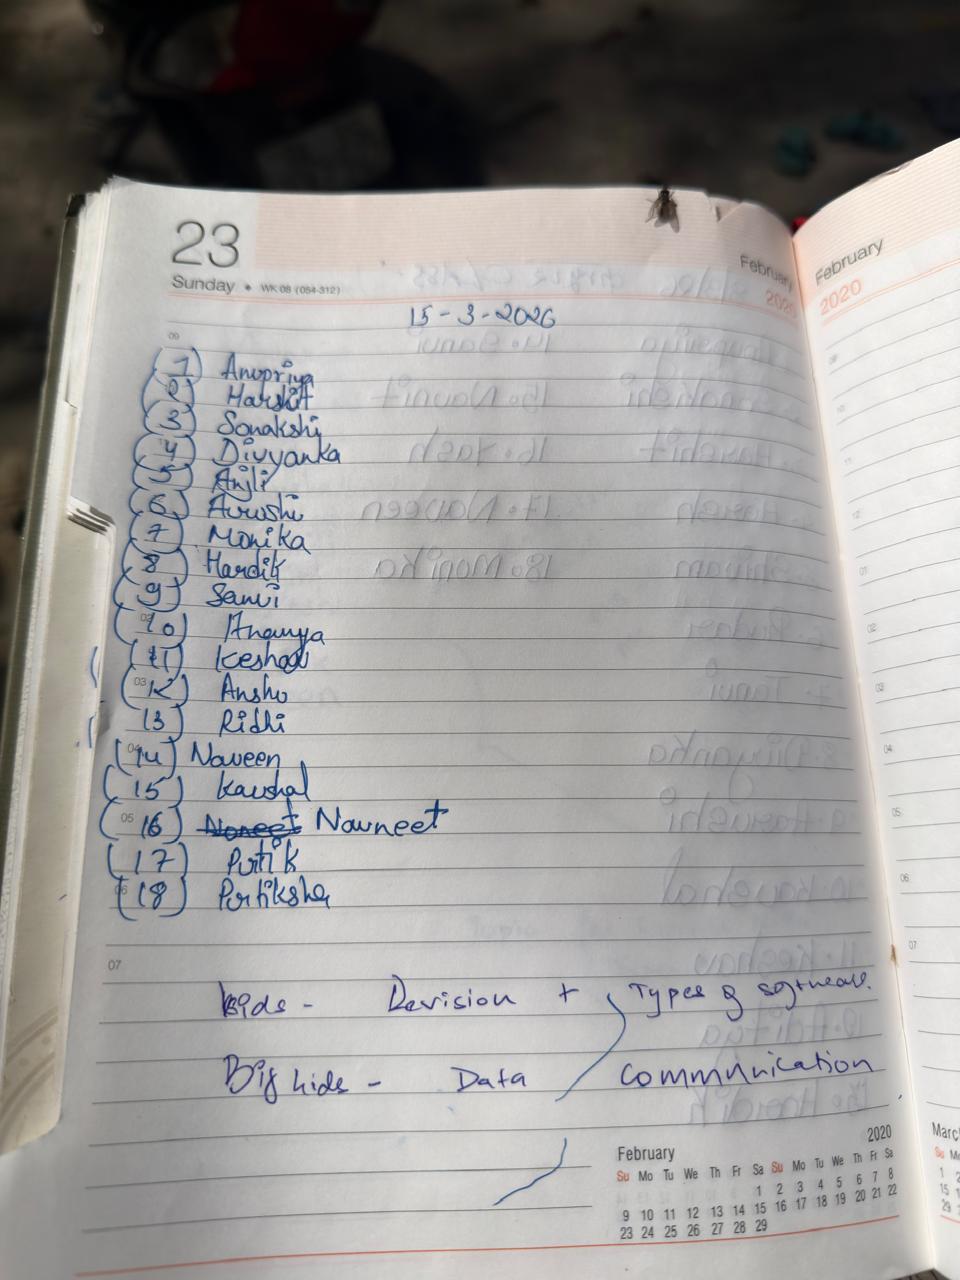 23
Sunday • WK 08 (054-312)
February
2020
February
2020
15-3-2026
09
(1) Anupriya
(2) Harshit
(3) Sonakshi
(4) Divyanka
(5) Anjli
(6) Aarushi
(7) Monika
(8) Hardik
(9) Sanvi
(10) Ananya
(11) Keshav
03
(12) Anshu
13) Ridhi
(14) Naveen
(15) Kaushal
05
(16) Navneet
(17) Prtik
06
(18) Prtiksha
07
Kids - Revision + Types of software.
Big kids - Data Communication
February 2020
Su Mo Tu We Th Fr Sa Su Mo Tu We Th Fr Sa
1 2 3 4 5 6 7 8
9 10 11 12 13 14 15 16 17 18 19 20 21 22
23 24 25 26 27 28 29